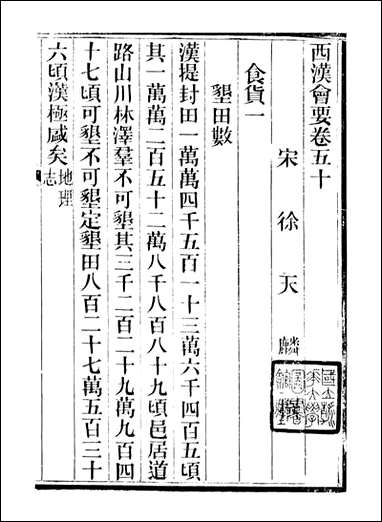 西漢會要卷五十
宋徐天麟
食貨一
墾田數
漢提封田一萬萬四千五百一十三萬六千四百五頃
其一萬萬二百五十二萬八千八百八十九頃邑居道
路山川林澤羣不可墾其三千二百二十九萬九百四
十七頃可墾不可墾定墾田八百二十七萬五百三十
六頃漢極盛矣地理志